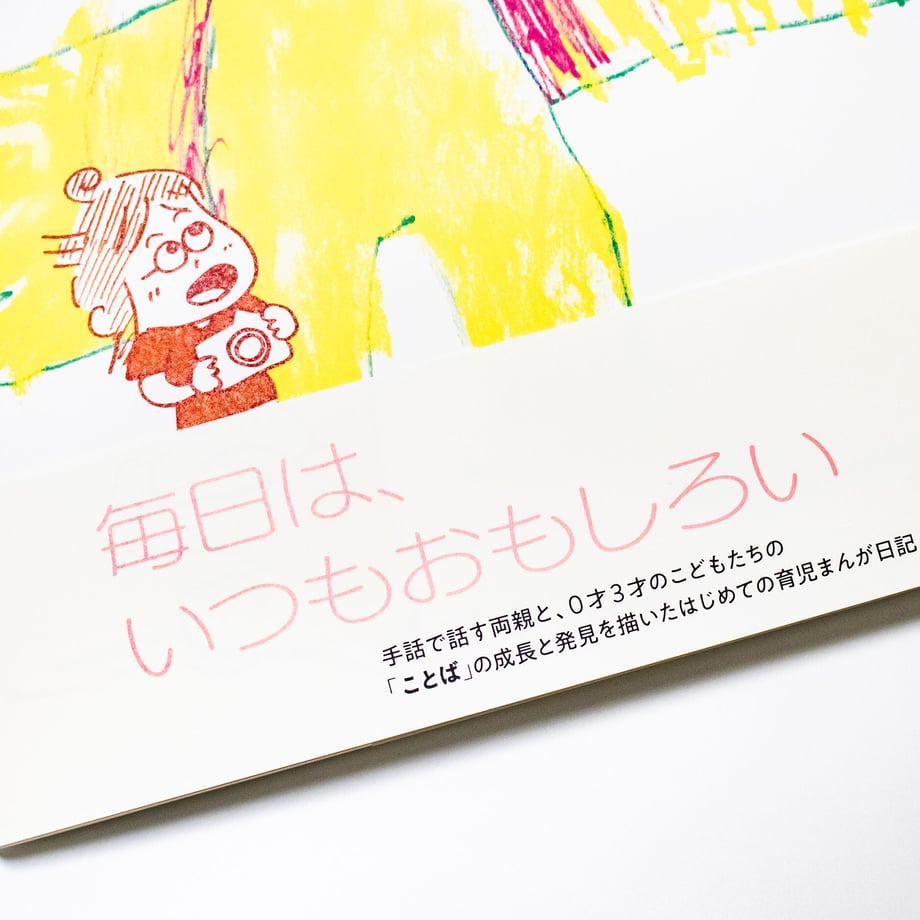 毎日は、
いつもおもしろい
手話で話す両親と、0才3才のこどもたちの
「ことば」の成長と発見を描いたはじめての育児まんが日記